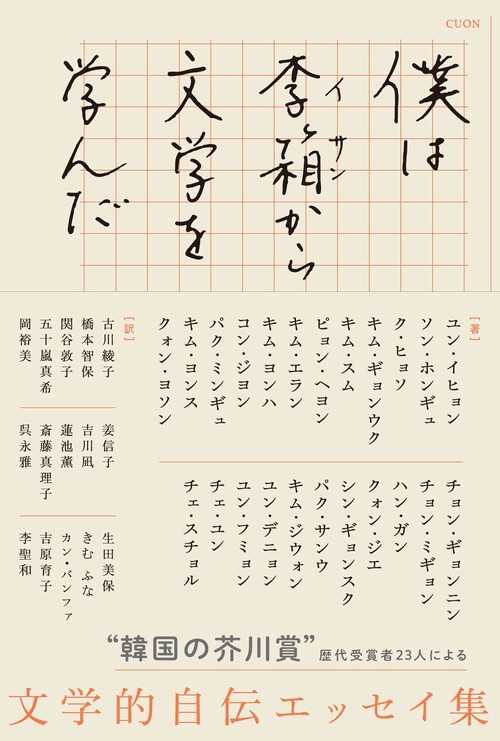 CUON
僕は
李箱から
イ サン
文学を
学んだ
[著]
ユン・イヒョン
ソン・ホンギュ
ク・ヒョソ
キム・ギョンウク
キム・スム
ピョン・ヘヨン
キム・エラン
キム・ヨンハ
コン・ジヨン
パク・ミンギュ
キム・ヨンス
クォン・ヨソン
チョン・ギョンニン
チョン・ミギョン
ハン・ガン
クォン・ジエ
シン・ギョンスク
パク・サンウ
キム・ジウォン
ユン・デニョン
ユン・フミョン
チェ・ユン
チェ・スチョル
[訳]
古川綾子
橋本智保
関谷敦子
五十嵐真希
岡裕美
姜信子
吉川凪
蓮池薫
斎藤真理子
呉永雅
生田美保
きむ ふな
カン・バンファ
吉原育子
李聖和
“韓国の芥川賞”歴代受賞者23人による
文学的自伝エッセイ集